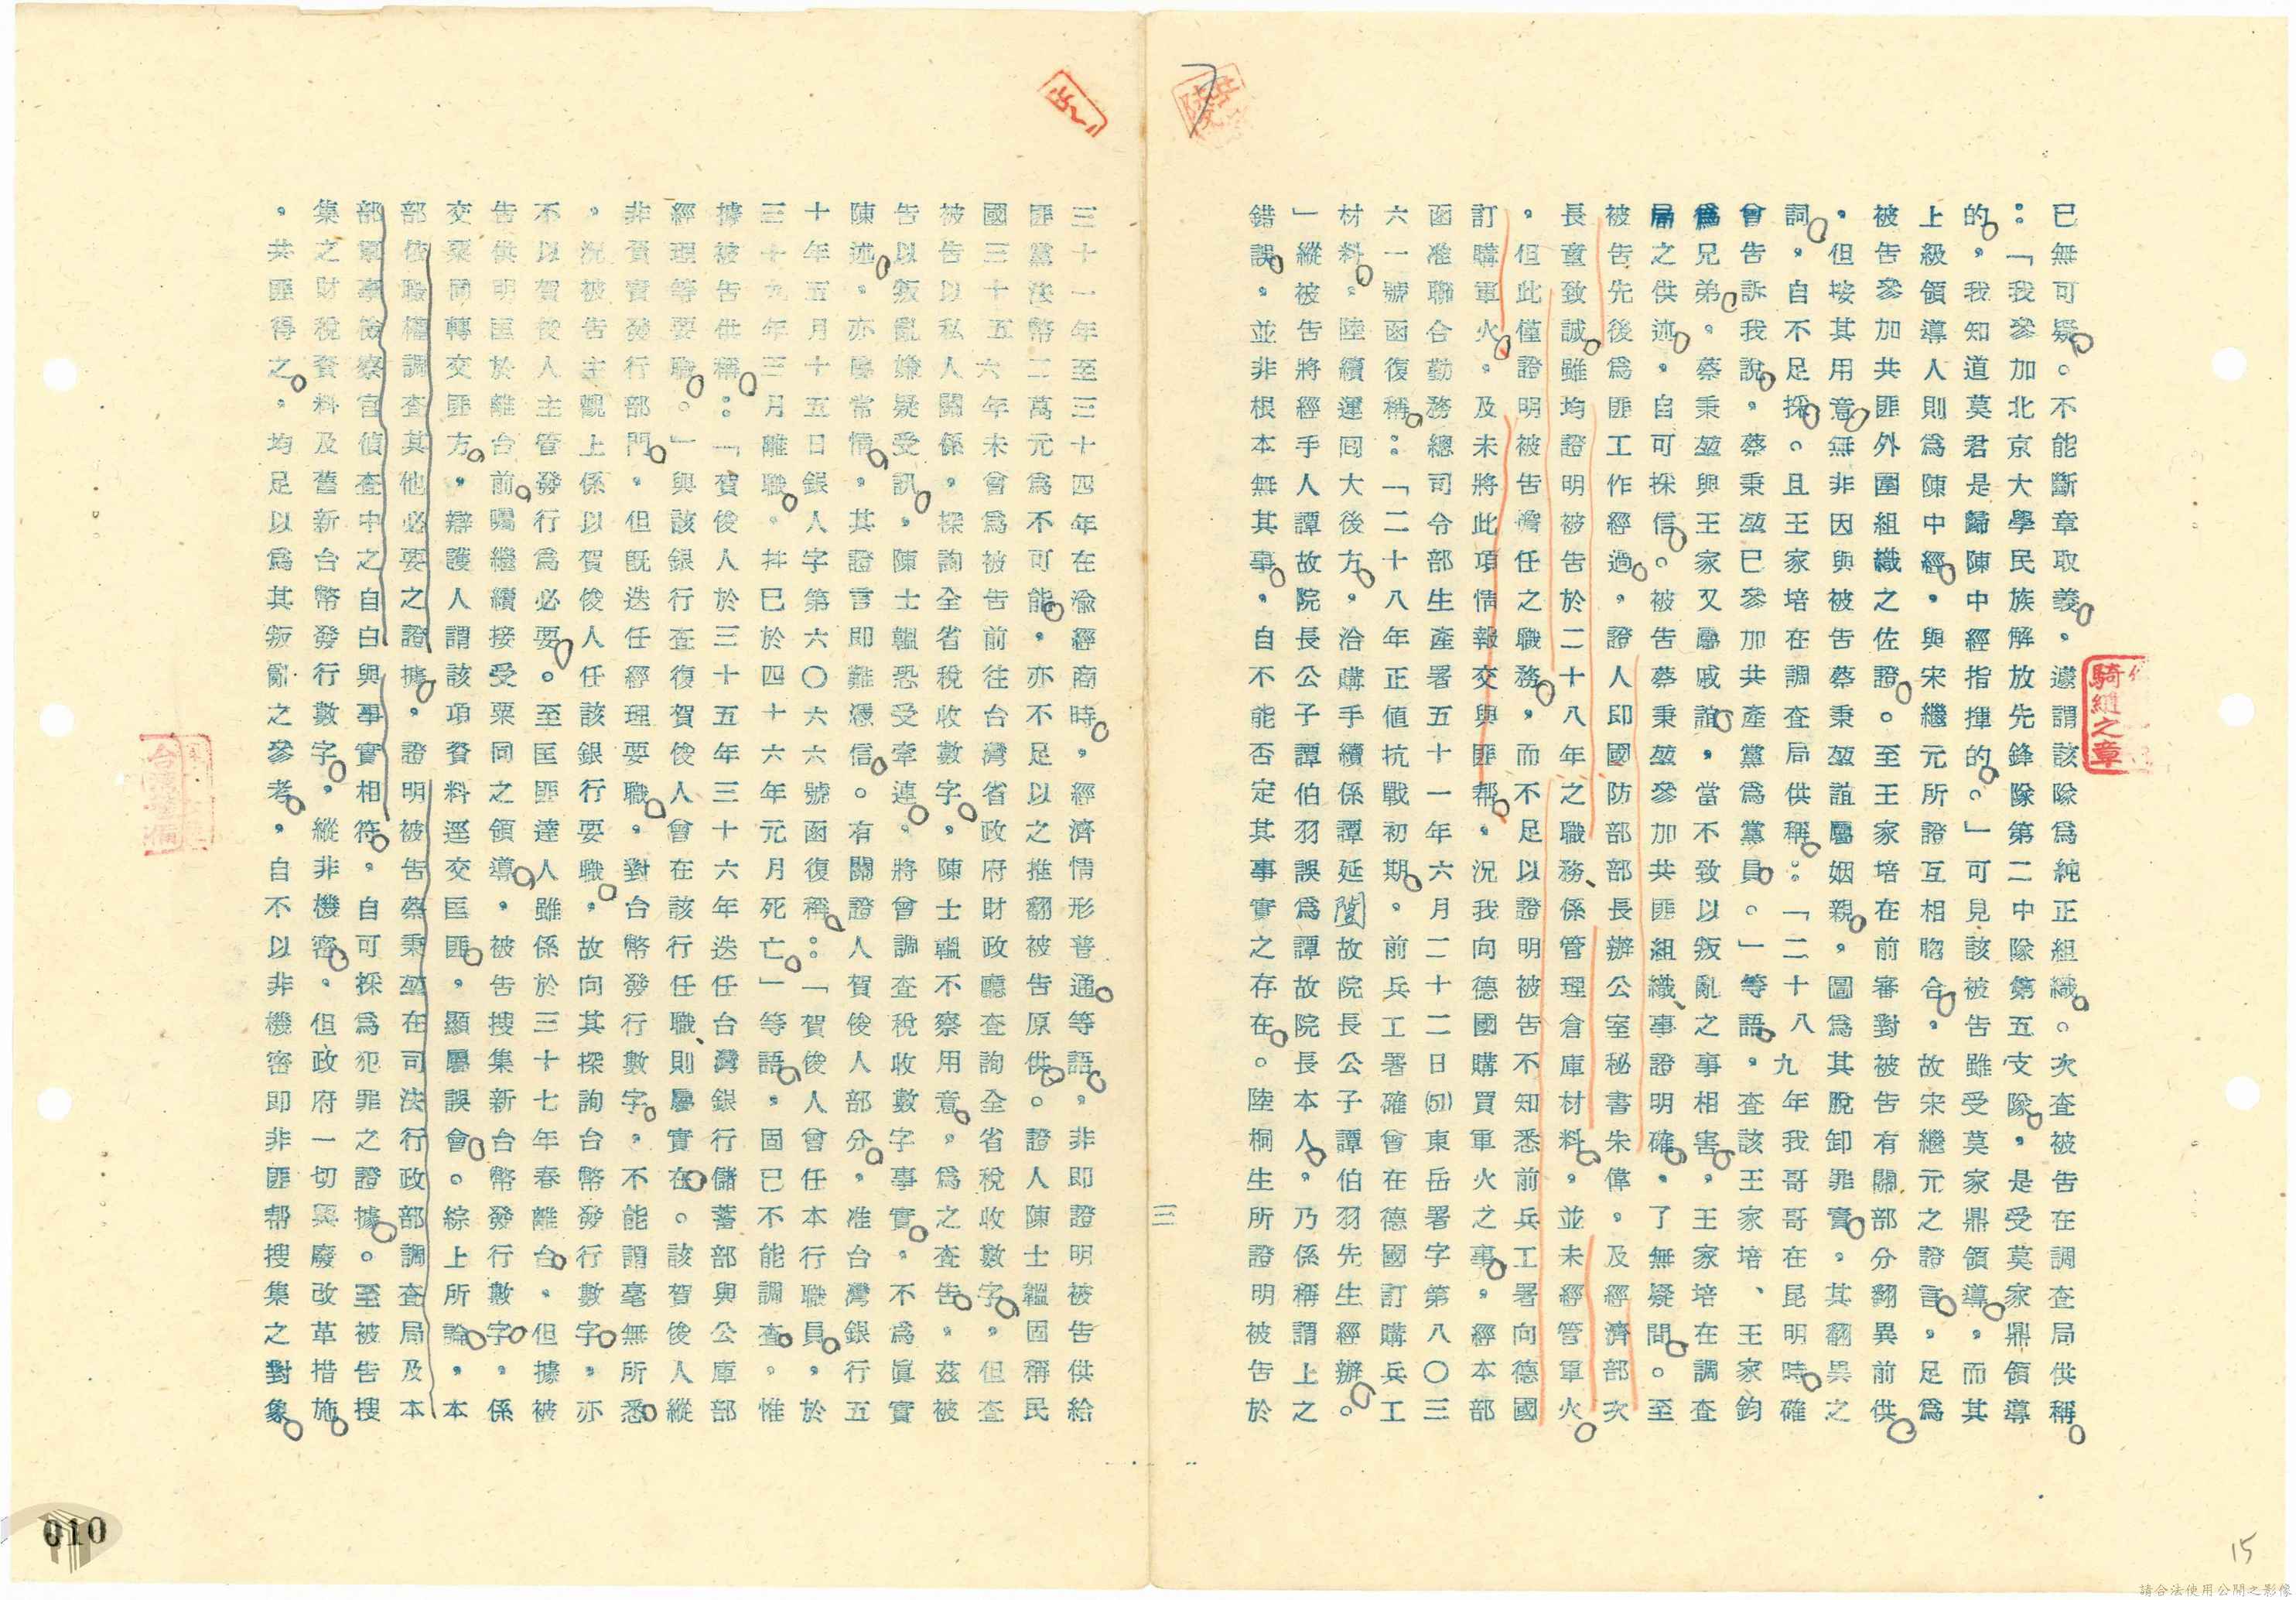 已無可疑。不能斷章取義，遽謂該隊為純正組織。次查被告在調查局供稱
：「我參加北京大學民族解放先鋒隊第二中隊第五支隊，是受莫家鼎領導
的，我知道莫君是歸陳中經指揮的。」可見該被告雖受莫家鼎領導，而其
上級領導人則為陳中經，與宋繼元所證互相脗合，故宋繼元之證言，足為
被告參加共匪外圍組織之佐證。至王家培在前審對被告有關部分翻異前供
，但按其用意無非因與被告蔡秉堃誼屬姻親，圖為其脫卸罪責，其翻異之
詞，自不足採。且王家培在調查局供稱：「二十八九年我哥哥在昆明時確
會告訴我說，蔡秉堃已參加共產黨為黨員。」等語，查該王家培、王家鈞
為兄弟。蔡秉堃與王家又屬戚誼，當不致以叛亂之事相害，王家培在調查
局之供述，自可採信。被告蔡秉堃參加共匪組織、事證明確，了無疑問。至
被告先後為匪工作經過，證人即國防部部長辦公室秘書朱偉，及經濟部次
長童致誠雖均證明被告於二十八年之職務、係管理倉庫材料，並未經管軍火
，但此僅證明被告擔任之職務，而不足以證明被告不知悉前兵工署向德國
訂購軍火，及未將此項情報交與匪幫，況我向德國購買軍火之事，經本部
函准聯合勤務總司令部生產署五十一年六月二十二日(51)東岳署字第八〇三
六一號函復稱：「二十八年正值抗戰初期，前兵工署確曾在德國訂購兵工
材料，陸續運回大後方，洽購手續係譚延闓故院長公子譚伯羽先生經辦。
」縱被告將經手人譚故院長公子譚伯羽誤為譚故院長本人，乃係稱謂上之
錯誤，並非根本無其事，自不能否定其事實之存在。陸桐生所證明被告於
三
三十一年至三十四年在渝經商時，經濟情形普通等語，非即證明被告供給
匪黨法幣二萬元為不可能，亦不足以之推翻被告原供。證人陳士韞固稱民
國三十五六年未會為被告前往台灣省政府財政廳查詢全省稅收數字，但查
被告以私人關係，探詢全省稅收數字，陳士韞不察用意，為之查告，茲被
告以叛亂嫌疑受訊，陳士韞恐受牽連，將會調查稅收數字事實，不為真實
陳述，亦屬常情，其證言即難憑信。有關證人賀俊人部分，准台灣銀行五
十年五月十五日銀人字第六〇六六號函復稱：「賀俊人會任本行職員，於
三十九年三月離職，并已於四十六年元月死亡」等語，固已不能調查。惟
據被告供稱：「賀俊人於三十五年三十六年迭任台灣銀行儲蓄部與公庫部
經理等要職。」與該銀行查復賀俊人會在該行任職、則屬實在。該賀俊人縱
非負實發行部門，但既迭任經理要職，對台幣發行數字，不能謂毫無所悉
，況被告主觀上係以賀俊人任該銀行要職，故向其探詢台幣發行數字，亦
不以賀俊人主管發行為必要。至匡匪達人雖係於三十七年春離台，但據被
告供明匡於離台前囑繼續接受粟同之領導，被告搜集新台幣發行數字，係
交粟同轉交匪方，辯護人謂該項資料逕交匡匪，顯屬誤會。綜上所論，本
部依職權調查其他必要之證據，證明被告蔡秉堃在司法行政部調查局及本
部軍事檢察官偵查中之自白與事實相符，自可採為犯罪之證據。至被告搜
集之財稅資料及舊新台幣發行數字，縱非機密，但政府一切興廢改革措施
，共匪得之，均足以為其叛亂之參考，自不以非機密即非匪幫搜集之對象
騎縫之章
010
15
請合法使用公開之影像